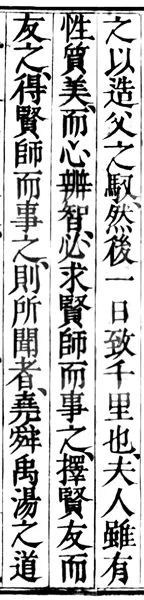 之以造父之馭然後一日致千里也、夫人雖有
性質美、而心辨智、必求賢師而事之、擇賢友而
友之、得賢師而事之、則所聞者、堯舜禹湯之道